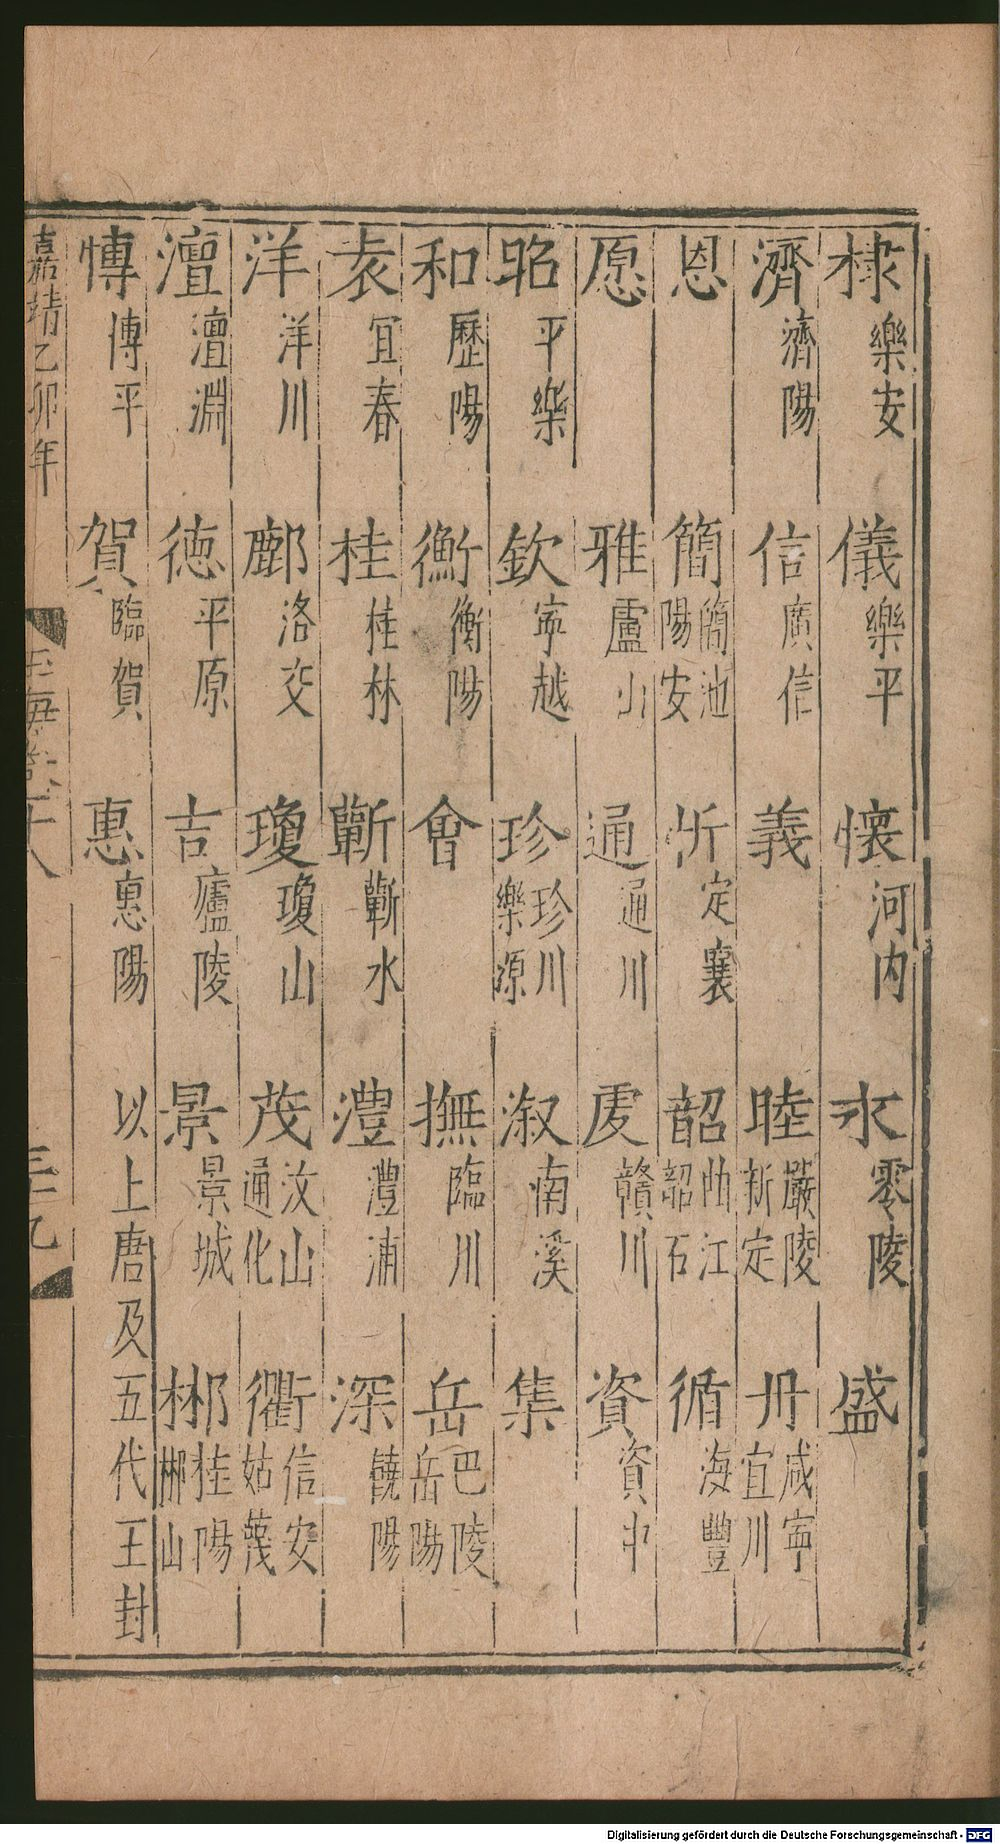 棣樂安 儀樂平 懷河内 永零陵 盛
濟濟陽 信廣信 義 睦嚴陵新定 丹咸寧宜川
恩 簡簡池陽安 忻定襄 韶曲江韶石 循海豐
愿 雅盧山 通通川 虔贛川 資資中
昭平樂 欽寧越 珍珍川樂源 溆南溪 集
和歷陽 衡衡陽 會 撫臨川 岳巴陵岳陽
袁宜春 桂桂林 蘄蘄水 澧澧浦 深饒陽
洋洋川 鄜洛交 瓊瓊山 茂汶山通化 衢信安姑蔑
澶澶淵 德平原 吉廬陵 景景城 郴桂陽郴山
博博平 賀臨賀 惠惠陽 以上唐及五代王封
嘉靖乙卯年
玉海卷 十八
三十九
Digitalisierung gefördert durch die Deutsche Forschungsgemeinschaft - DFG